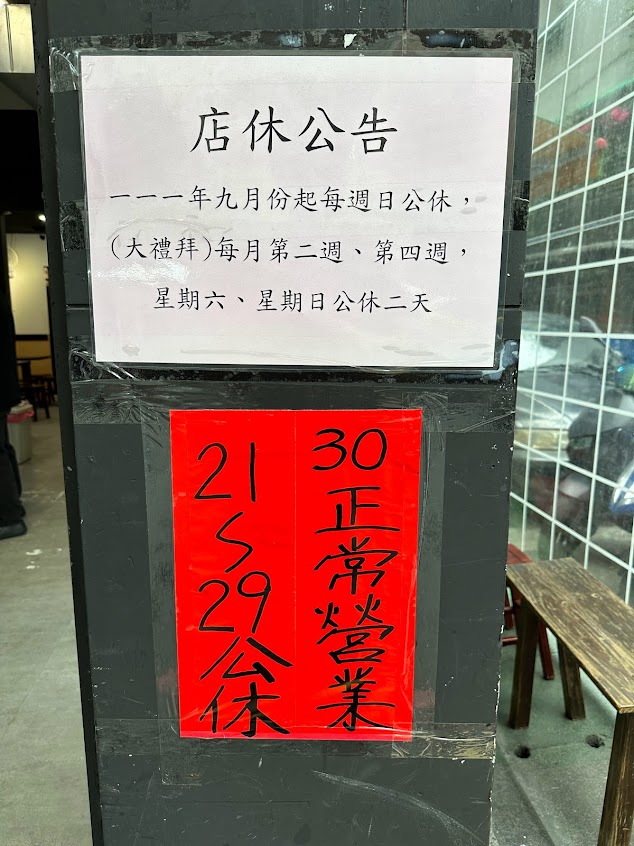 店休公告
一一一年九月份起每週日公休，
(大禮拜)每月第二週、第四週，
星期六、星期日公休二天
30正常營業
21~29公休